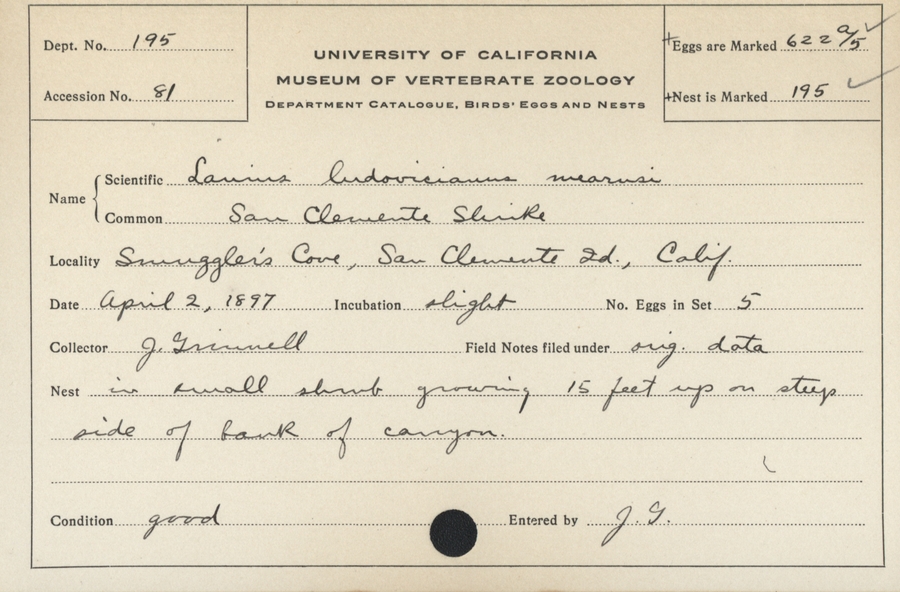 Dept. No. 195
Accession No. 81
UNIVERSITY OF CALIFORNIA
MUSEUM OF VERTEBRATE ZOOLOGY
DEPARTMENT CATALOGUE, BIRDS' EGGS AND NESTS
+Eggs are Marked 622 a/5
+Nest is Marked 195
Name
Scientific Lanius ludovicianus mearnsi
Common San Clemente Shrike
Locality Smuggler's Cove, San Clemente Id., Calif.
Date April 2, 1897 Incubation slight No. Eggs in Set 5
Collector J. Grinnell Field Notes filed under orig. data
Nest in small shrub growing 15 feet up on steep
side of bank of canyon.
Condition good Entered by J. G.